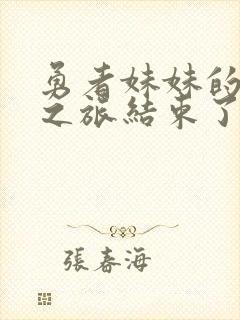 勇者妹妹的
之旅結束了
張春海